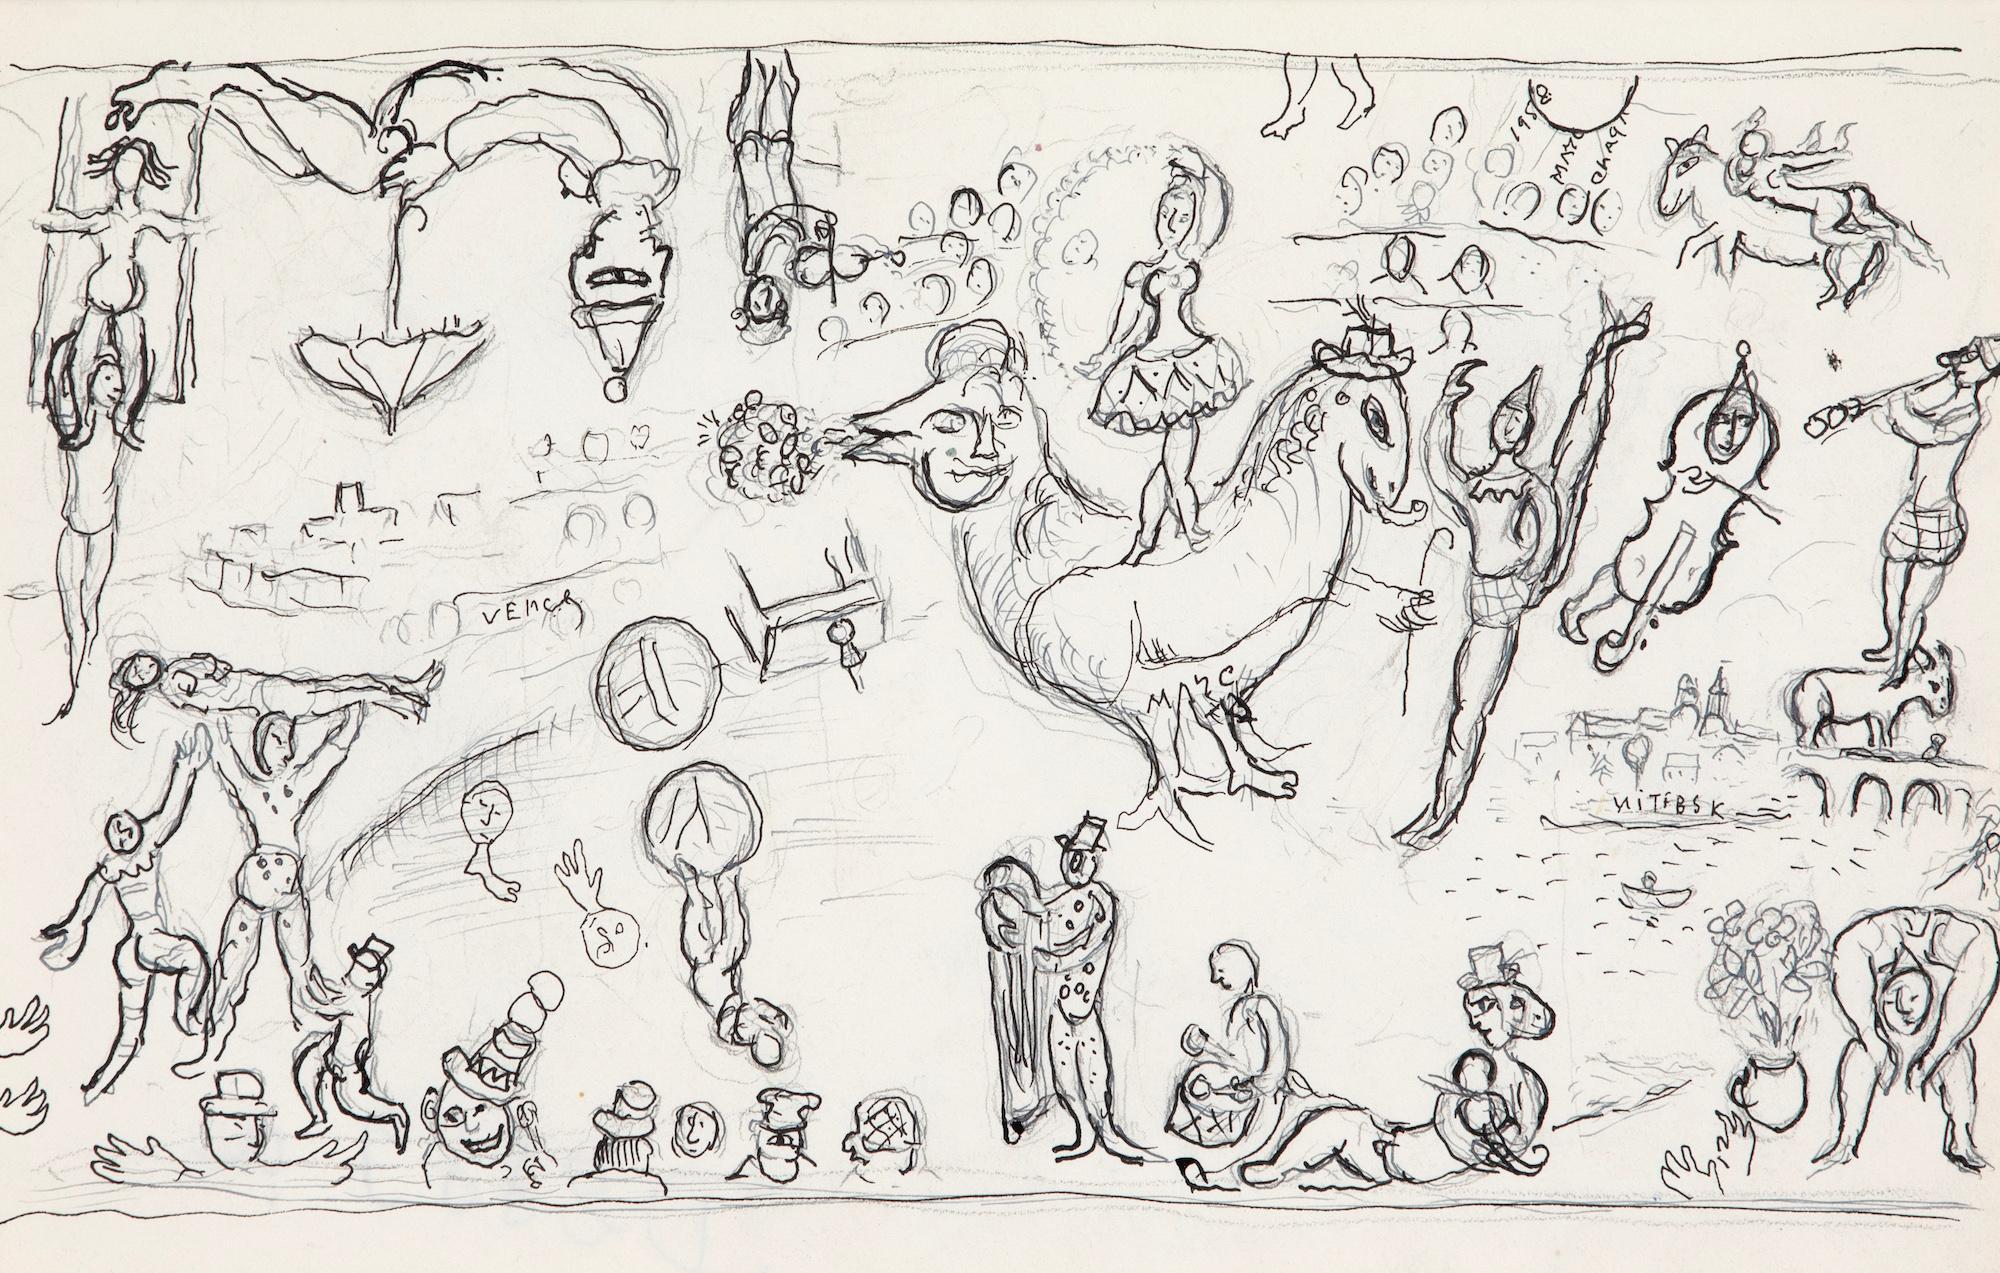 195
8
MARC
Chagall
VENCE
MARC
VITEBSK